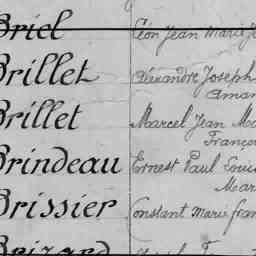 Briel Léon Jean Marie
Brillet Alexandre Joseph
Aman
Brillet Marcel Jean Ma
Franço
Brindeau Ernest Paul Louis
Mar
Brissier Constant Marie fran
Brizard